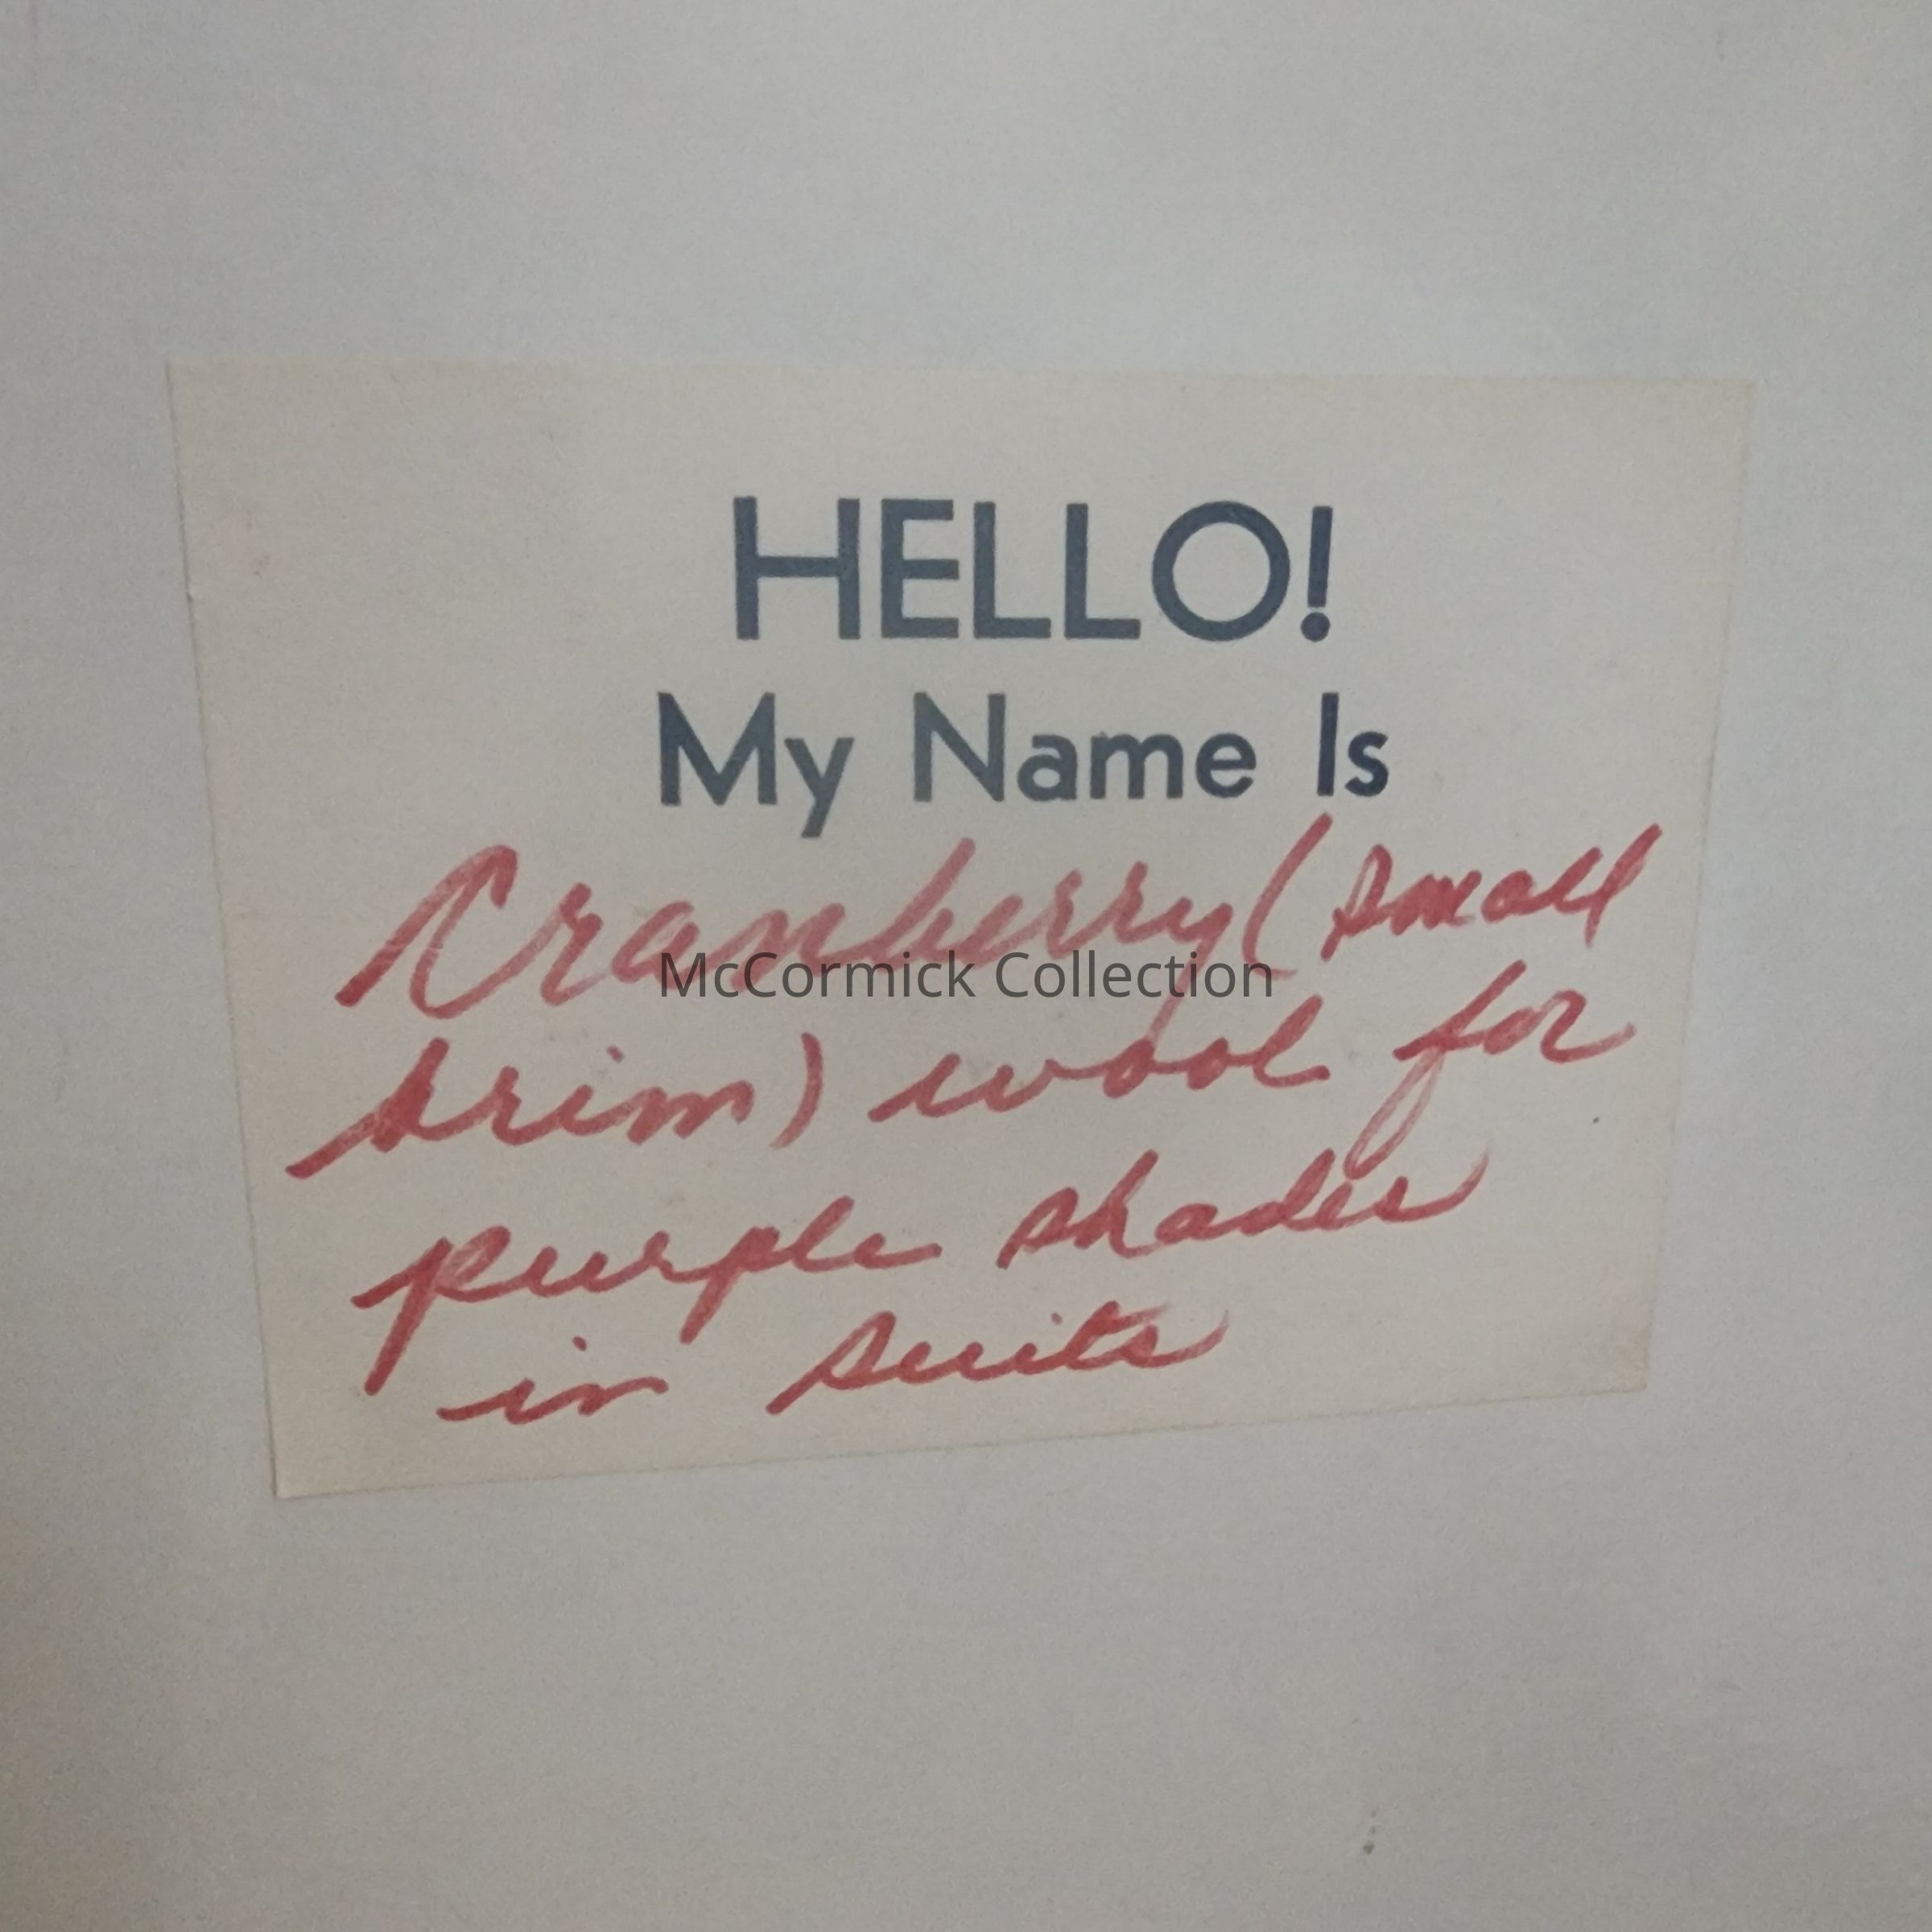 HELLO!
My Name Is
Cranberry (small
McCormick Collection
brim) wool for
purple shades
in suits